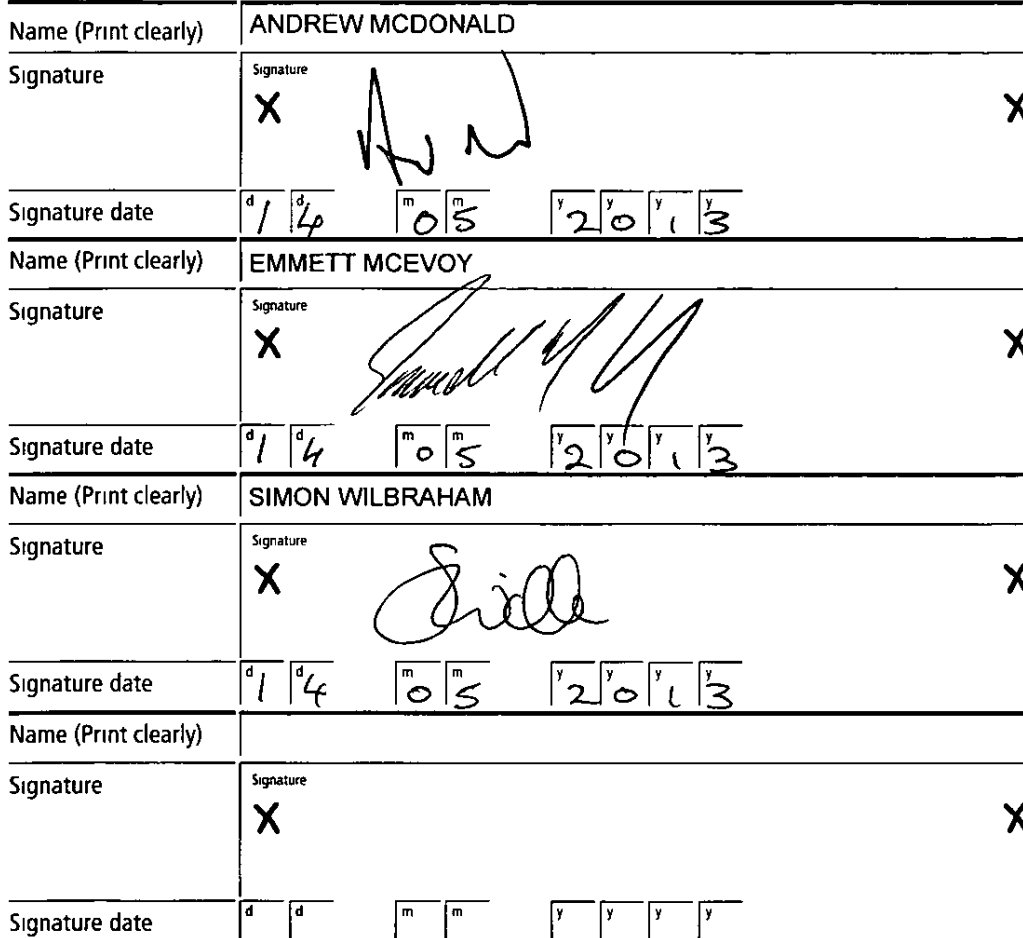 Name (Print clearly) ANDREW MCDONALD
Signature Signature
X X
Signature date d 1 d 4 m 0 m 5 y 2 y 0 y 1 y 3
Name (Print clearly) EMMETT MCEVOY
Signature Signature
X X
Signature date d 1 d 4 m 0 m 5 y 2 y 0 y 1 y 3
Name (Print clearly) SIMON WILBRAHAM
Signature Signature
X X
Signature date d 1 d 4 m 0 m 5 y 2 y 0 y 1 y 3
Name (Print clearly)
Signature Signature
X X
Signature date d d m m y y y y